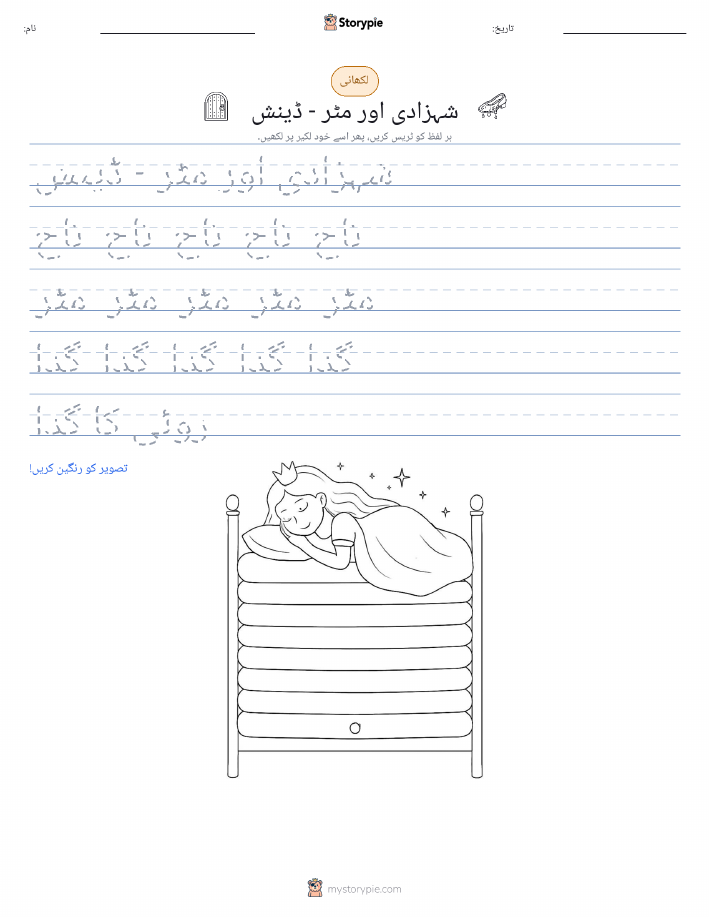 نام:
تاریخ:
Storypie
لکھائی
شہزادی اور مٹر - ڈینش
ہر لفظ کو ٹریس کریں، پھر اسے خود لکیر پر لکھیں۔
شہزادی اور مٹر - ڈینش
تاج تاج تاج تاج تاج
مٹر مٹر مٹر مٹر مٹر
گدا گدا گدا گدا گدا
روئی کا گدا
تصویر کو رنگین کریں!
mystorypie.com